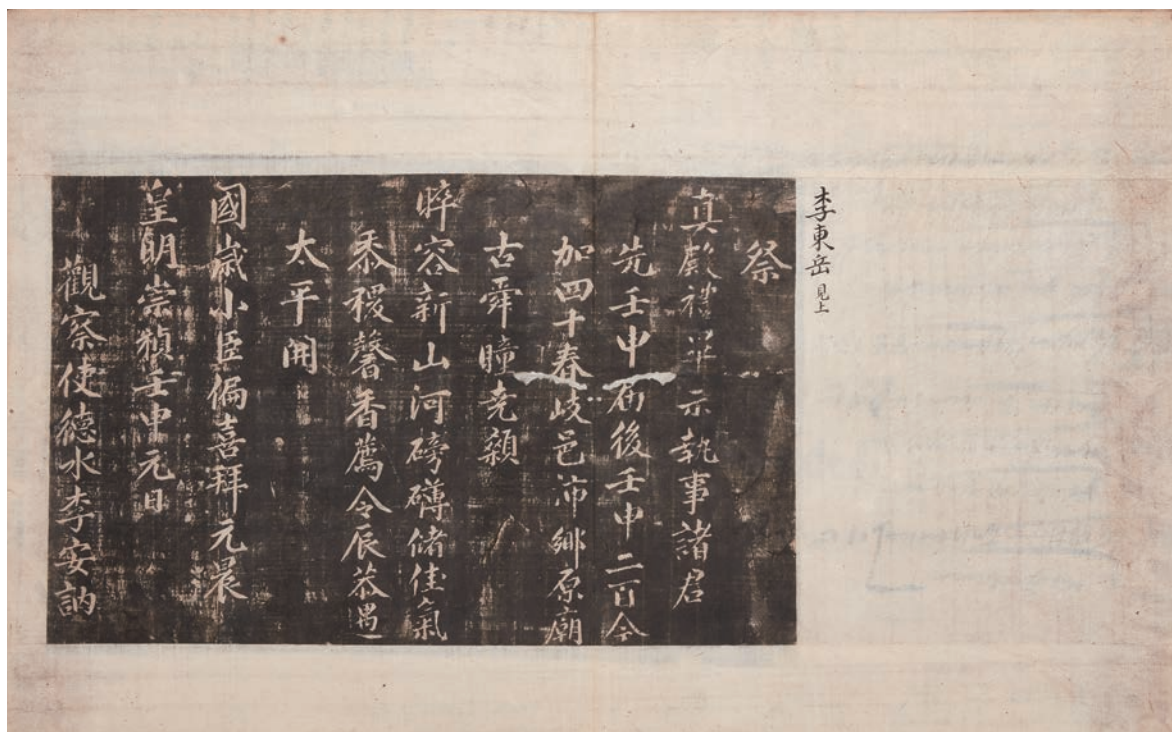 李東岳 見上
祭
真殿禮畢示執事諸君
先壬申届後壬申二百今
加四十春岐邑沛鄉原廟
古舜瞳堯顙
睟容新山河磅礴儲佳氣
黍稷馨香薦令辰恭遇
太平開
國歲小臣偏喜拜元晨
皇明崇禎壬申元日
觀察使德水李安訥